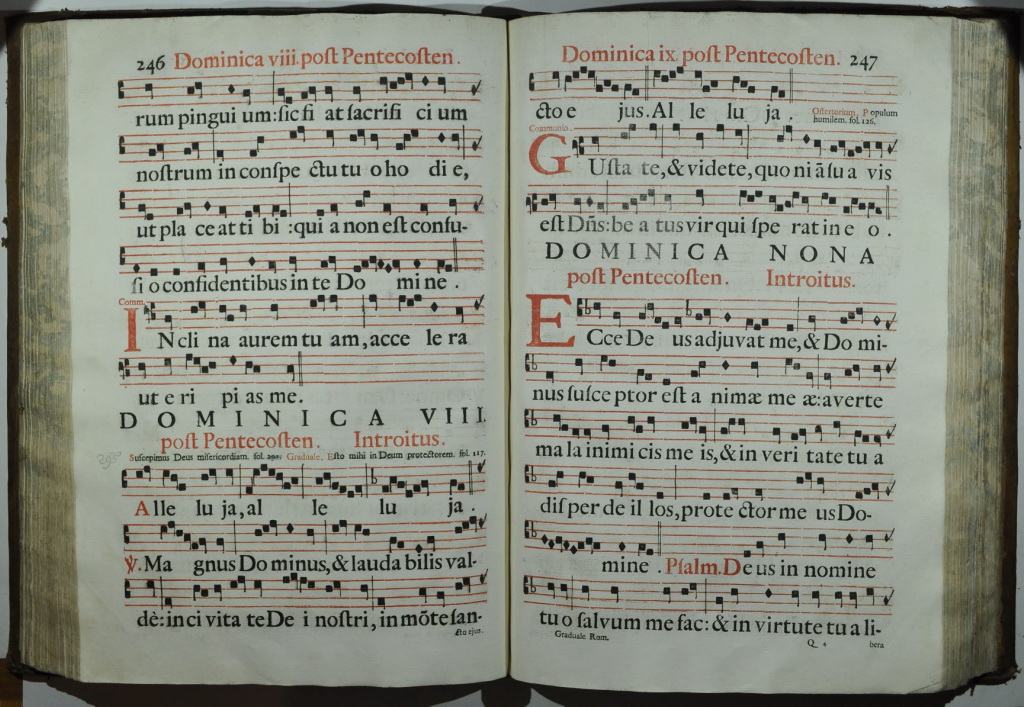 246 Dominica viii. poſt Pentecoſten.
rum pingui um: ſic fi at ſacrifi ci um
noſtrum in conſpe ctu tu o ho di e,
ut pla ce at ti bi : qui a non eſt confu-
ſi o confidentibus in te Do mi ne .
Comm.
IN cli na aurem tu am, acce le ra
ut e ri pi as me.
DOMINICA VIII.
poſt Pentecoſten. Introitus.
Suscepimus Deus misericordiam. fol. 290. Graduale, Eſto mihi in Deum protectorem. fol. 117.
Alle lu ja, al le lu ja .
℣. Ma gnus Do minus, & lauda bilis val-
dè: in ci vita te De i noſtri, in mōte ſan-
cto ejus.
Dominica ix. poſt Pentecoſten. 247
cto e jus. Al le lu ja . Offertorium, Populum
humilem. fol. 126.
Communio.
GUſta te, & videte, quo ni ā ſu a vis
eſt Dn̄s: be a tus vir qui ſpe rat in e o .
DOMINICA NONA
poſt Pentecoſten. Introitus.
ECce De us adjuvat me, & Do mi-
nus ſuſce ptor eſt a nimæ me æ: averte
ma la inimi cis me is, & in veri tate tu a
diſ per de il los, prote ctor me us Do-
mine . Pſalm. De us in nomine
tu o ſalvum me fac: & in virtute tu a li-
Graduale Rom. Q 4 bera